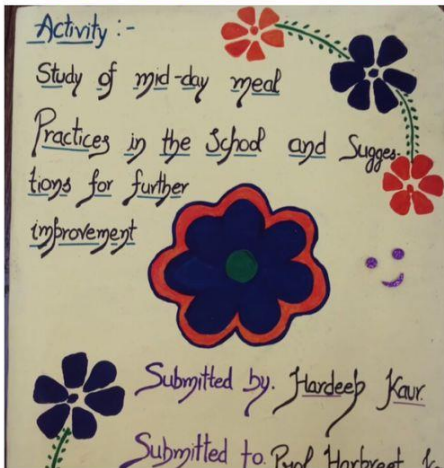 Activity :-
Study of mid-day meal
Practices in the School and Sugges-
tions for further
improvement
Submitted by. Hardeep Kaur.
Submitted to. Prof Harpreet